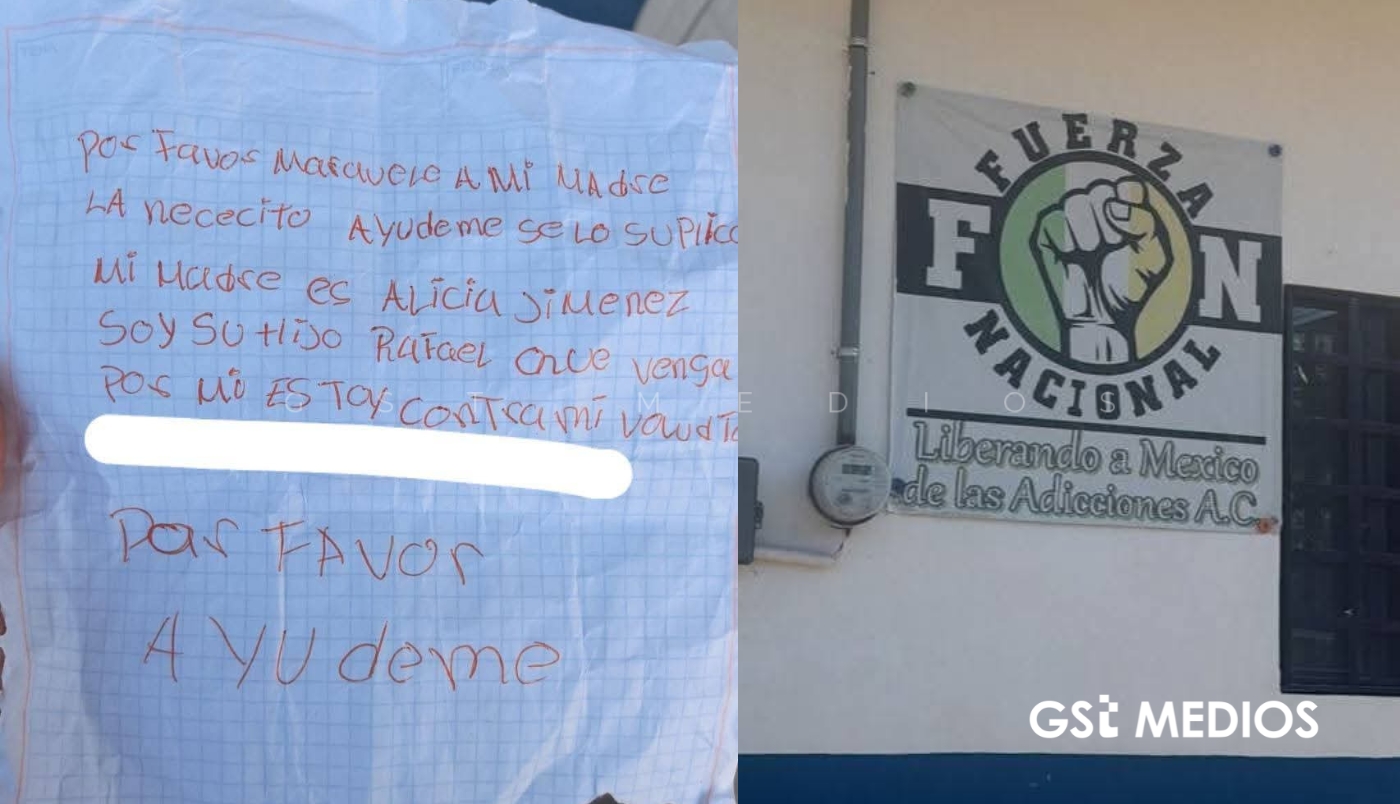 Por Favor Marquele A Mi Madre
LA nececito Ayudeme se Lo suplico
Mi Madre es ALicia Jimenez
SOY SU HIJO RaFael Que venga
POR Mi ESTOY Contra mi
POR FAVOR
AYUdeme
FUERZA
F N
NACIONAL
Liberando a Mexico
de las Adicciones A.C.
GSt MEDIOS
GSt MEDIOS